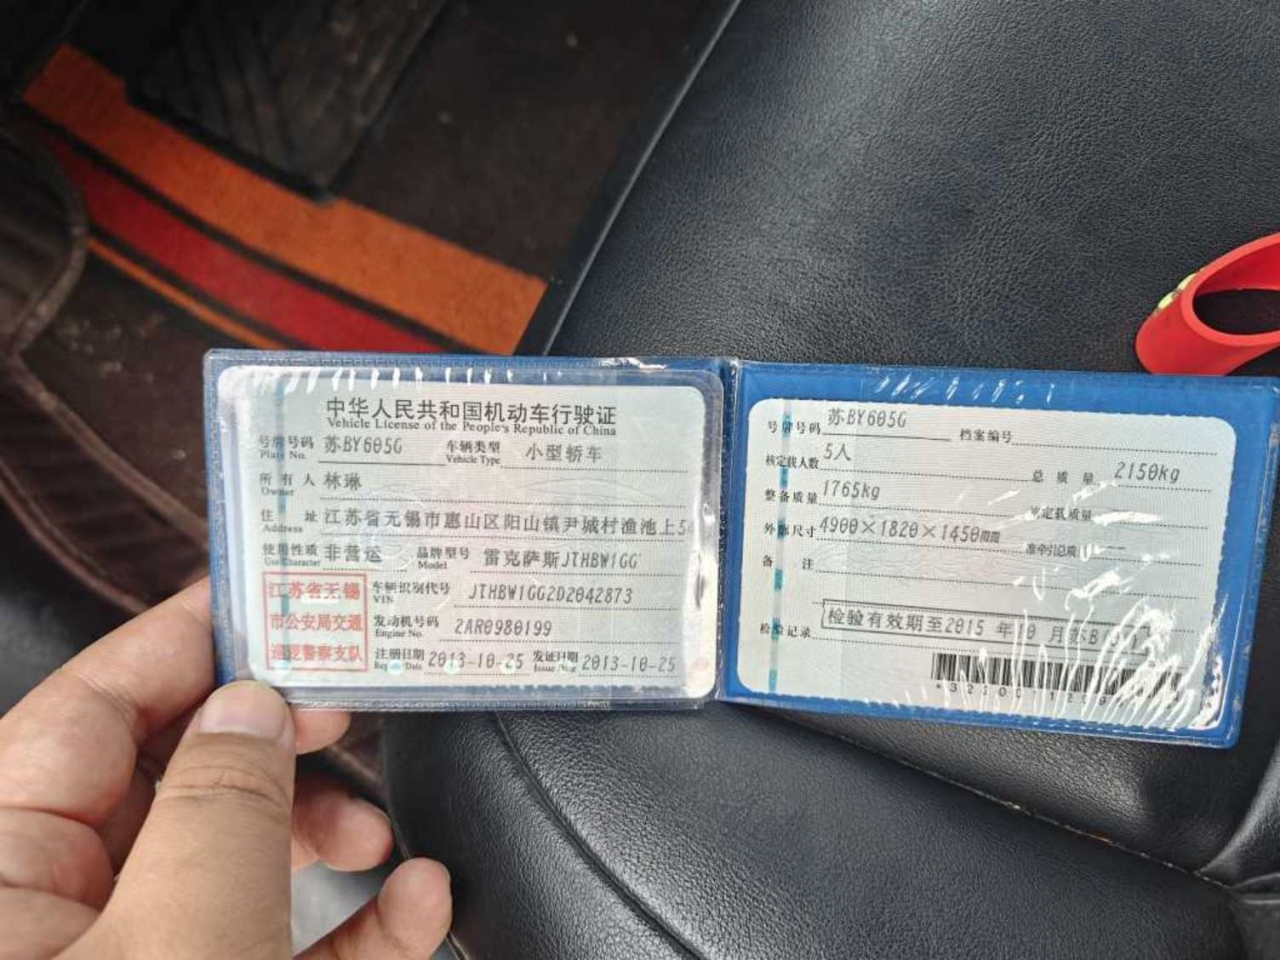 中华人民共和国机动车行驶证
Vehicle License of the People's Republic of China
号牌号码 苏BY605G 车辆类型 小型轿车
Plate No. Vehicle Type
所有人 林琳
Owner
住址 江苏省无锡市惠山区阳山镇尹城村渔池上5
Address
使用性质 非营运 品牌型号 雷克萨斯JTHBW1GG
Use Character Model
江苏省无锡
市公安局交通
巡逻警察支队
车辆识别代号 JTHBW1GG2D2042873
VIN
发动机号码 2AR0980199
Engine No.
注册日期 2013-10-25 发证日期 2013-10-25
Register Date Issue Date
号牌号码 苏BY605G 档案编号
核定载人数 5人 总质量 2150kg
整备质量 1765kg 核定载质量
外廓尺寸 4900×1820×1450mm 准牵引总质量 --
备注
检验记录 检验有效期至2015 年10 月苏B